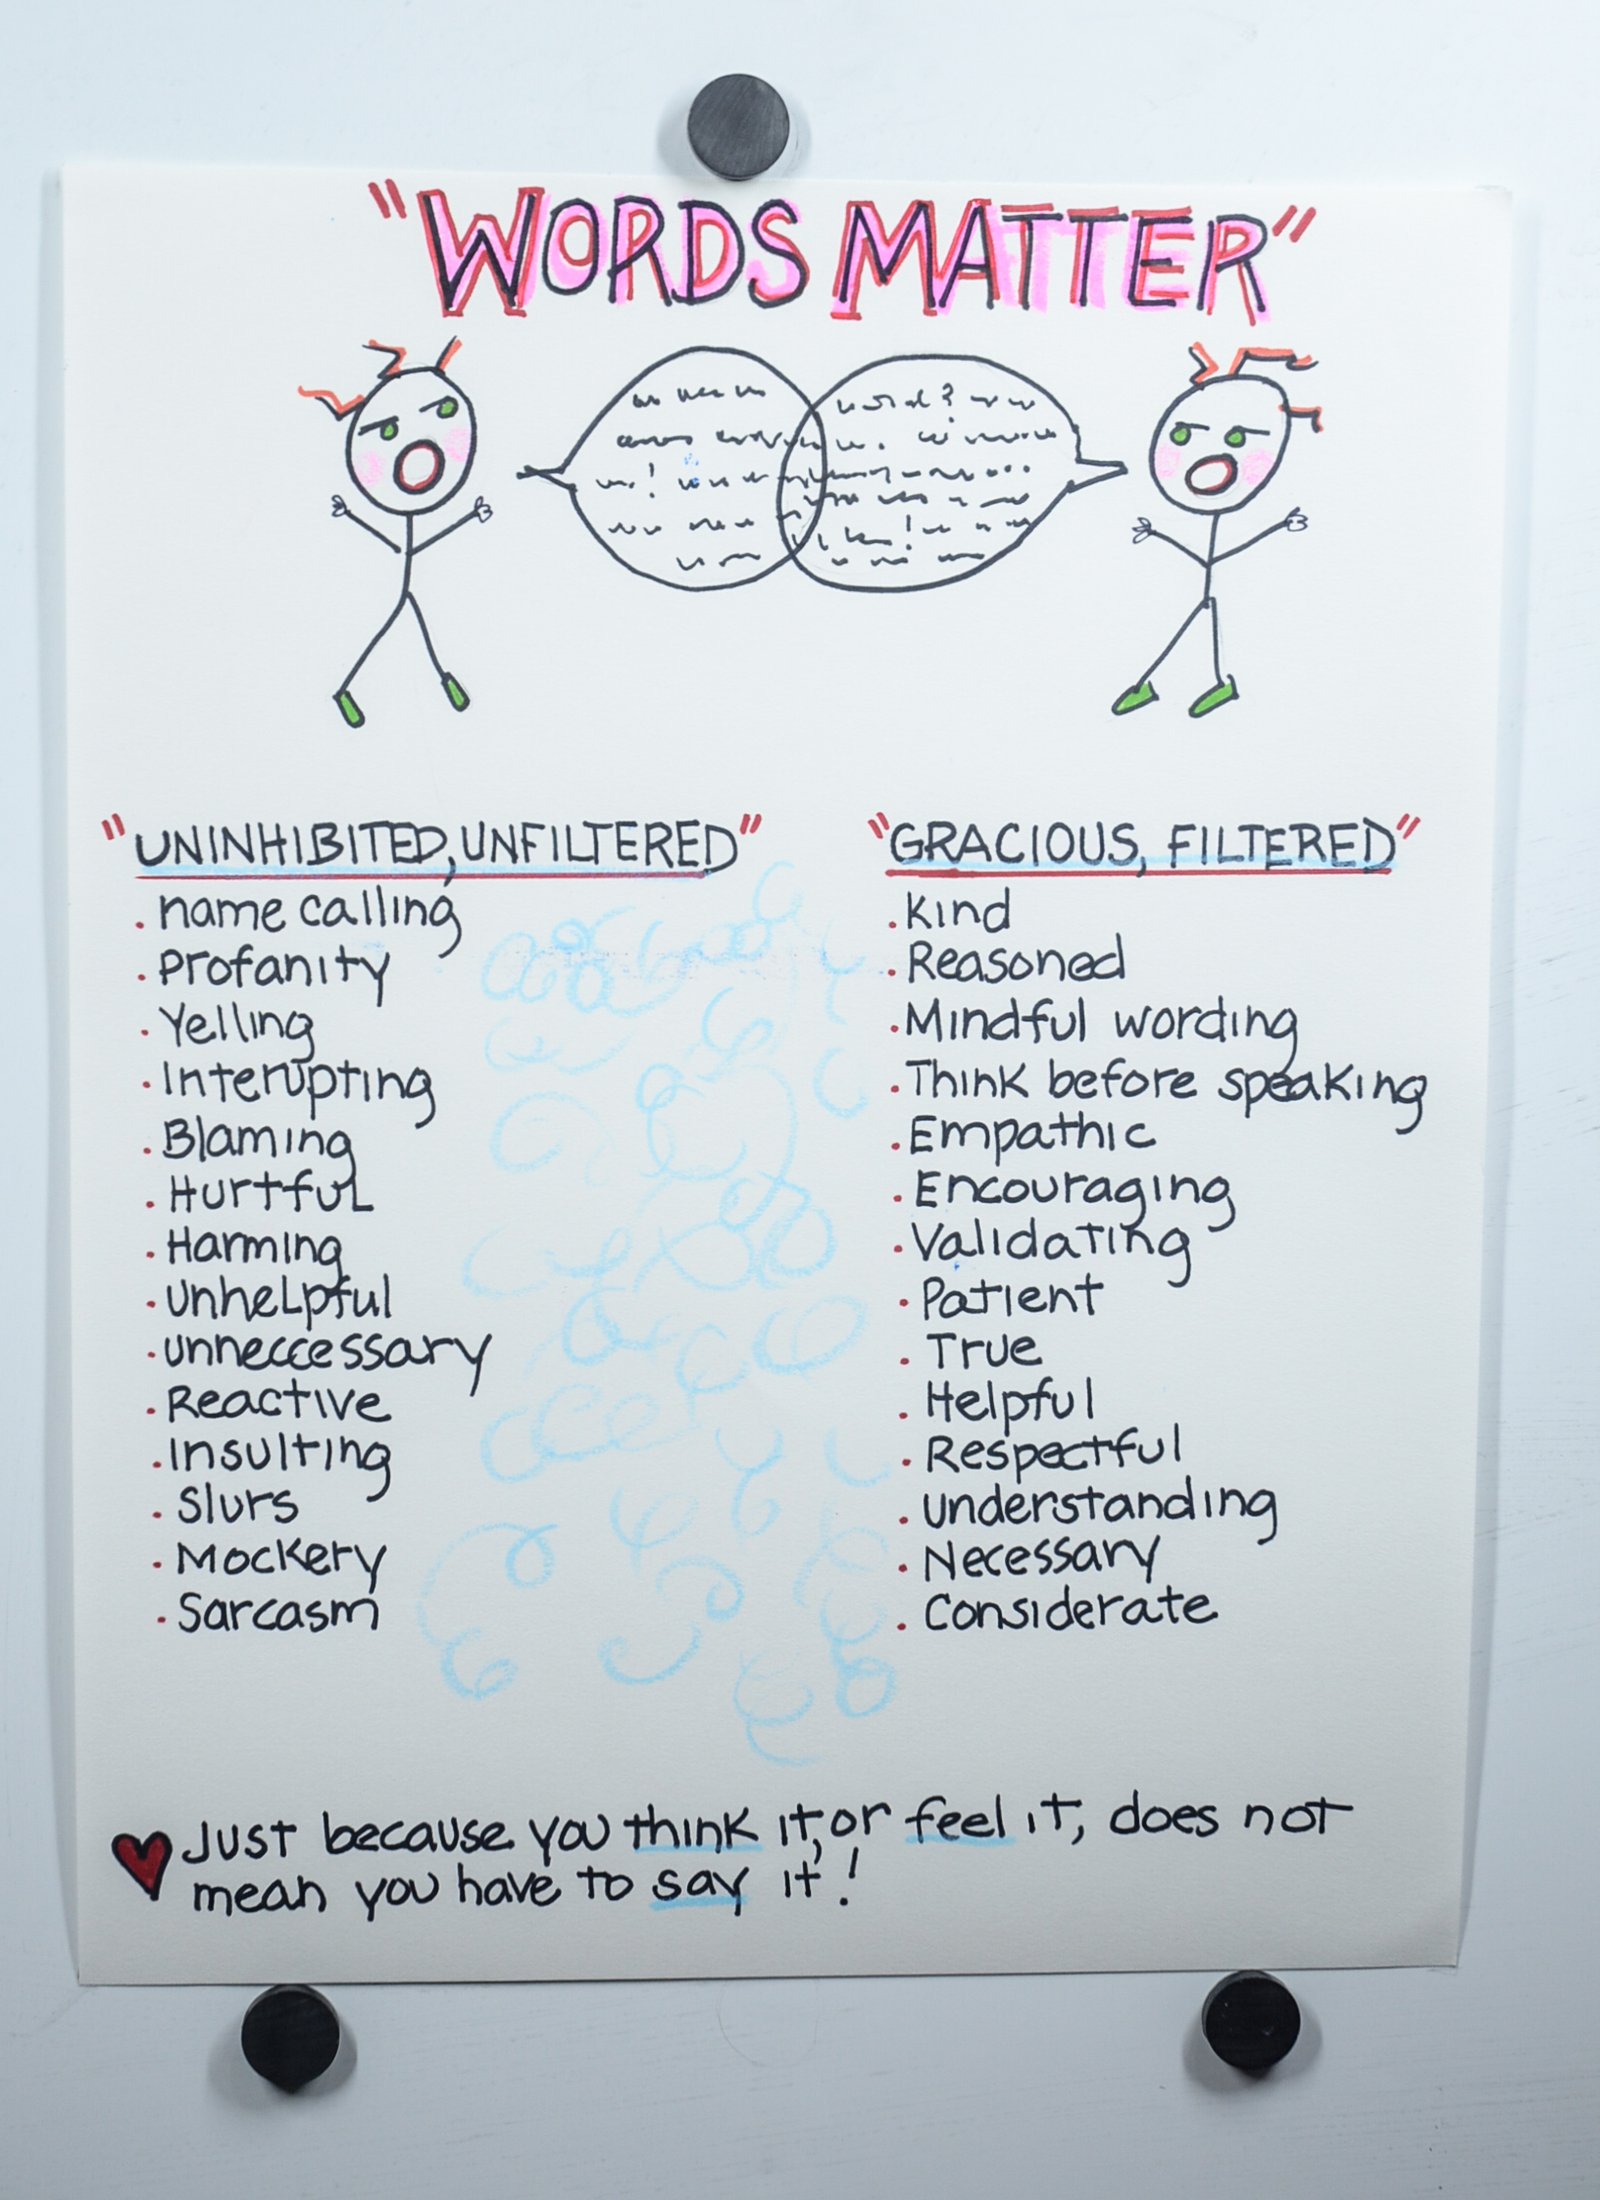 "WORDS MATTER"
"UNINHIBITED, UNFILTERED"
. name calling
. Profanity
. Yelling
. Interupting
. Blaming
. Hurtful
. Harming
. unhelpful
. unneccessary
. Reactive
. Insulting
. Slurs
. Mockery
. Sarcasm
"GRACIOUS, FILTERED"
. Kind
. Reasoned
. Mindful wording
. Think before speaking
. Empathic
. Encouraging
. Validating
. Patient
. True
. Helpful
. Respectful
. understanding
. Necessary
. Considerate
Just because you think it, or feel it, does not
mean you have to say it!